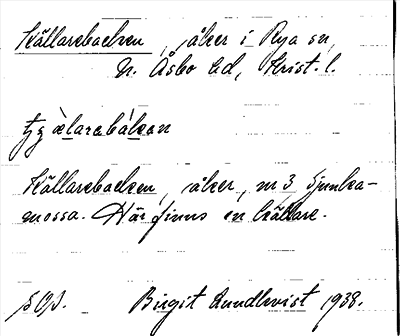 Källarebacken, åker i Rya sn,
N. Åsbo hd, Krist. l.
Källarebacken, åker, nr 3 Ljunka-
mossa. Här finns en källare.
Birgit Lundkvist 1938.